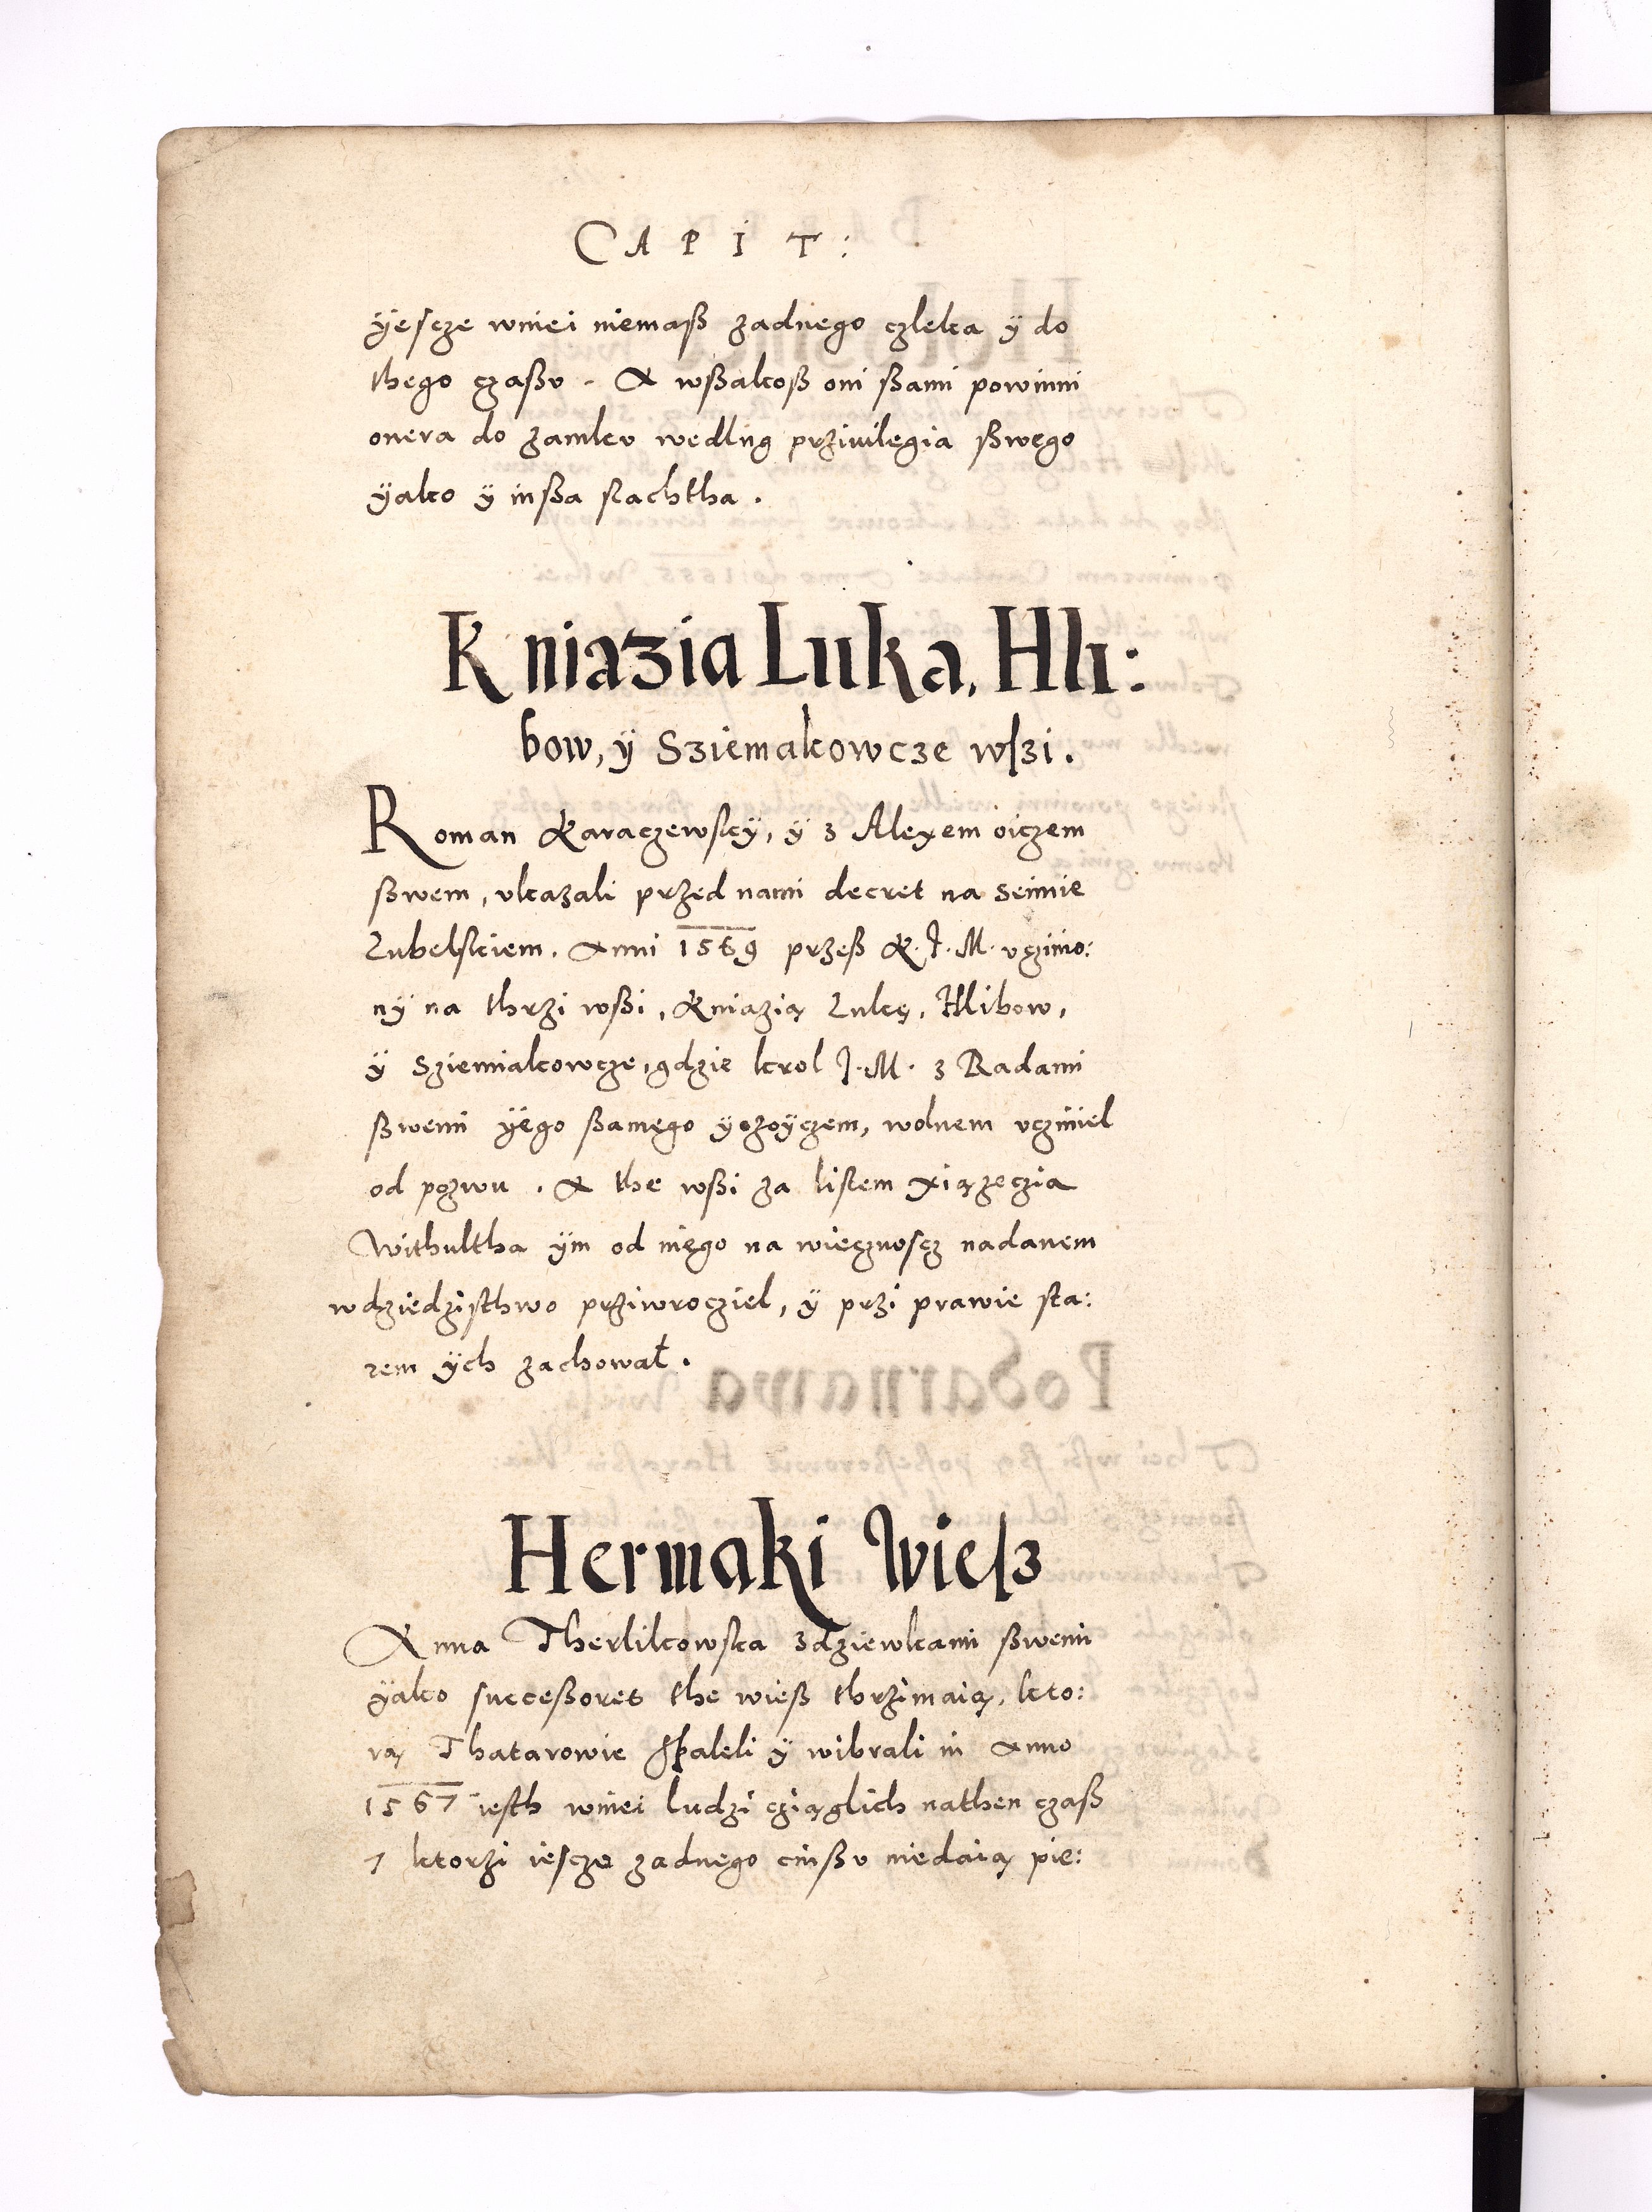 CAPIT:
yescze wniei niemaß zadnego czleka ÿ do
thego czaßv - A wßakoß oni ßami powinni
onera do zamkv wedlug prziuilegia ßwego
ÿako ÿ inßa slachtha.
Kniazia Luka, Hli:
bow, ÿ Sziemakowcze wſzi.
Roman Karaczewskÿ, ÿ z Alexem oiczem
ßwem, vkazali przed nami decret na seimie
Lubelskiem. Anni 1569 przeß K. J. M. vczinio:
nÿ na thrzi wßi, Kniazią Lukę, Hlibow,
ÿ Sziemiakowcze, gdzie krol J. M. z Radami
ßwemi ÿego ßamego yozoÿczem, wolnem vcziniel
od pozwu. A the wßi za listem xiązeczia
Withultha ÿm od niego na wiecznoscz nadanem
wdziedzisthwo prziwrocziel, ÿ przi prawie sta:
rem ÿch zachował.
Hermaki Wieſz
Anna Therlikowska zdziewkami ßwemi
ÿako succeßores the wieß thrzimaią, kto:
rą Thatarowie spaleli ÿ wibrali in Anno
1567 iesth wniei ludzi cziąglich nathen czaß
7 ktorzi iescze zadnego cinßv niedaią pie: